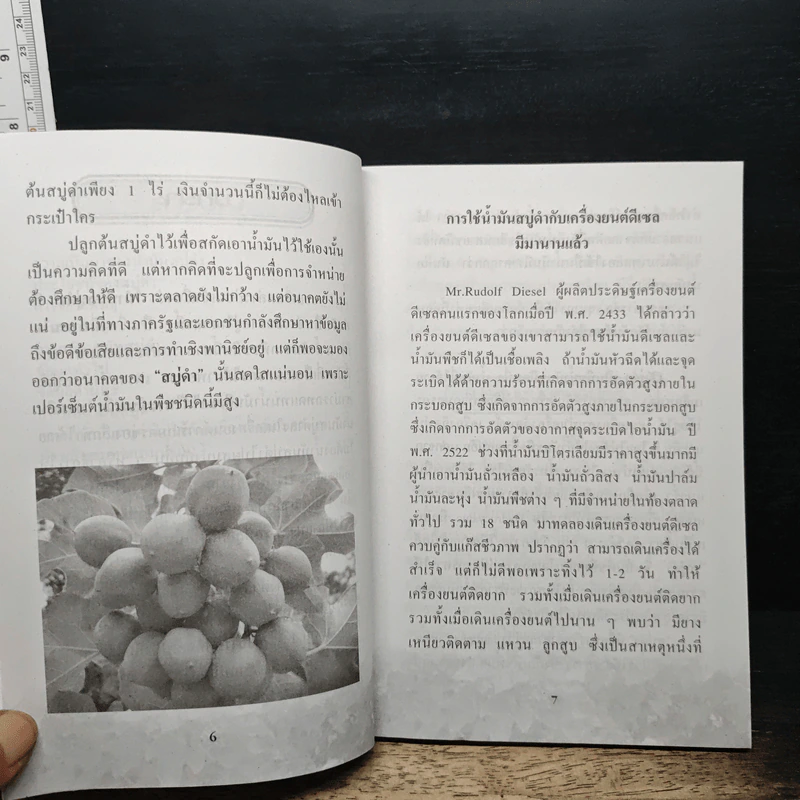 ต้นสบู่ดำเพียง 1 ไร่ เงินจำนวนนี้ก็ไม่ต้องไหลเข้า
กระเป๋าใคร
ปลูกต้นสบู่ดำไว้เพื่อสกัดเอาน้ำมันไว้ใช้เองนั้น
เป็นความคิดที่ดี แต่หากคิดที่จะปลูกเพื่อการจำหน่าย
ต้องศึกษาให้ดี เพราะตลาดยังไม่กว้าง แต่อนาคตยังไม่
แน่ อยู่ในที่ทางภาครัฐและเอกชนกำลังศึกษาหาข้อมูล
ถึงข้อดีข้อเสียและการทำเชิงพานิชย์อยู่ แต่ก็พอจะมอง
ออกว่าอนาคตของ “สบู่ดำ” นั้นสดใสแน่นอน เพราะ
เปอร์เซ็นต์น้ำมันในพืชชนิดนี้มีสูง
6
การใช้น้ำมันสบู่ดำกับเครื่องยนต์ดีเซล
มีมานานแล้ว
Mr.Rudolf Diesel ผู้ผลิตประดิษฐ์เครื่องยนต์
ดีเซลคนแรกของโลกเมื่อปี พ.ศ. 2433 ได้กล่าวว่า
เครื่องยนต์ดีเซลของเขาสามารถใช้น้ำมันดีเซลและ
น้ำมันพืชก็ได้เป็นเชื้อเพลิง ถ้าน้ำมันหัวฉีดได้และจุด
ระเบิดได้ด้วยความร้อนที่เกิดจากการอัดตัวสูงภายใน
กระบอกสูบ ซึ่งเกิดจากการอัดตัวสูงภายในกระบอกสูบ
ซึ่งเกิดจากการอัดตัวของอากาศจุดระเบิดไอน้ำมัน ปี
พ.ศ. 2522 ช่วงที่น้ำมันบิโตรเลียมมีราคาสูงขึ้นมากมี
ผู้นำเอาน้ำมันถั่วเหลือง น้ำมันถั่วลิสง น้ำมันปาล์ม
น้ำมันละหุ่ง น้ำมันพืชต่าง ๆ ที่มีจำหน่ายในท้องตลาด
ทั่วไป รวม 18 ชนิด มาทดลองเดินเครื่องยนต์ดีเซล
ควบคู่กับแก๊สชีวภาพ ปรากฏว่า สามารถเดินเครื่องได้
สำเร็จ แต่ก็ไม่ดีพอเพราะทิ้งไว้ 1-2 วัน ทำให้
เครื่องยนต์ติดยาก รวมทั้งเมื่อเดินเครื่องยนต์ติดยาก
รวมทั้งเมื่อเดินเครื่องยนต์ไปนาน ๆ พบว่า มียาง
เหนียวติดตาม แหวน ลูกสูบ ซึ่งเป็นสาเหตุหนึ่งที่
7